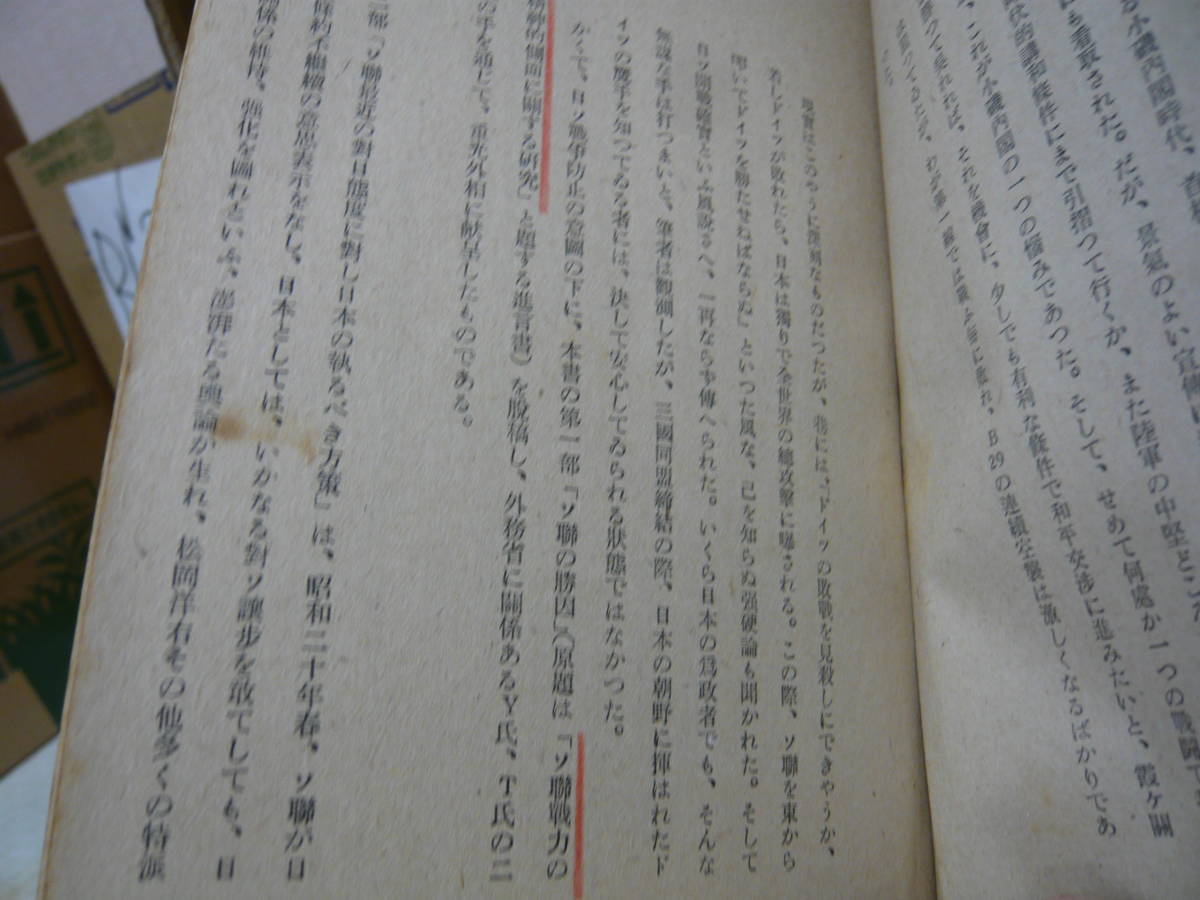 る小磯内閣時代、
も看取された。だが、景氣のよい宣傳
にまで引摺つて行くか、また陸軍の中堅と
、これが小磯内閣の一つの悩みであつた。そして、せめて何處か一つの
れば、それを機會に、少しでも有利な條件で和平交渉に進みたいと、霞ケ關
B29の連續空襲は激しくなるばかりであ
現實はこのやうに深刻なものだつたが、巷には、「ドイツの敗戰を見殺しにできやうか、
若しドイツが敗れたら、日本は獨りで全世界の總攻撃に曝される。この際、ソ聯を東から
叩いてドイツを勝たせねばならぬ」といつた風な、己を知らぬ强硬論も聞かれた。そして
日ソ開戰確實といふ風說さへ、一再ならず傳へられた。いくら日本の爲政者でも、そんな
無謀な手は打つまいと、筆者は觀測したが、三國同盟締結の際、日本の朝野に揮はれたド
イツの魔手を知つてゐる者には、決して安心してゐられる狀態ではなかつた。
かくて、日ソ戰爭防止の意圖の下に、本書の第一部「ソ聯の勝因」(原題は「ソ聯戰力の
的側面に關する研究」と題する進言書)を脫稿し、外務省に關係あるY氏、T氏の二
の手を通じて、重光外相に獻呈したものである。
二部「ソ聯最近の對日態度に對し日本の執るべき方策」は、昭和二十年春、ソ聯が日
條約不繼續の意思表示をなし、日本としては、いかなる對ソ讓步を敢てしても、日
關係の維持、强化を圖れといふ、澎湃たる輿論が生れ、松岡洋右その他多くの特派